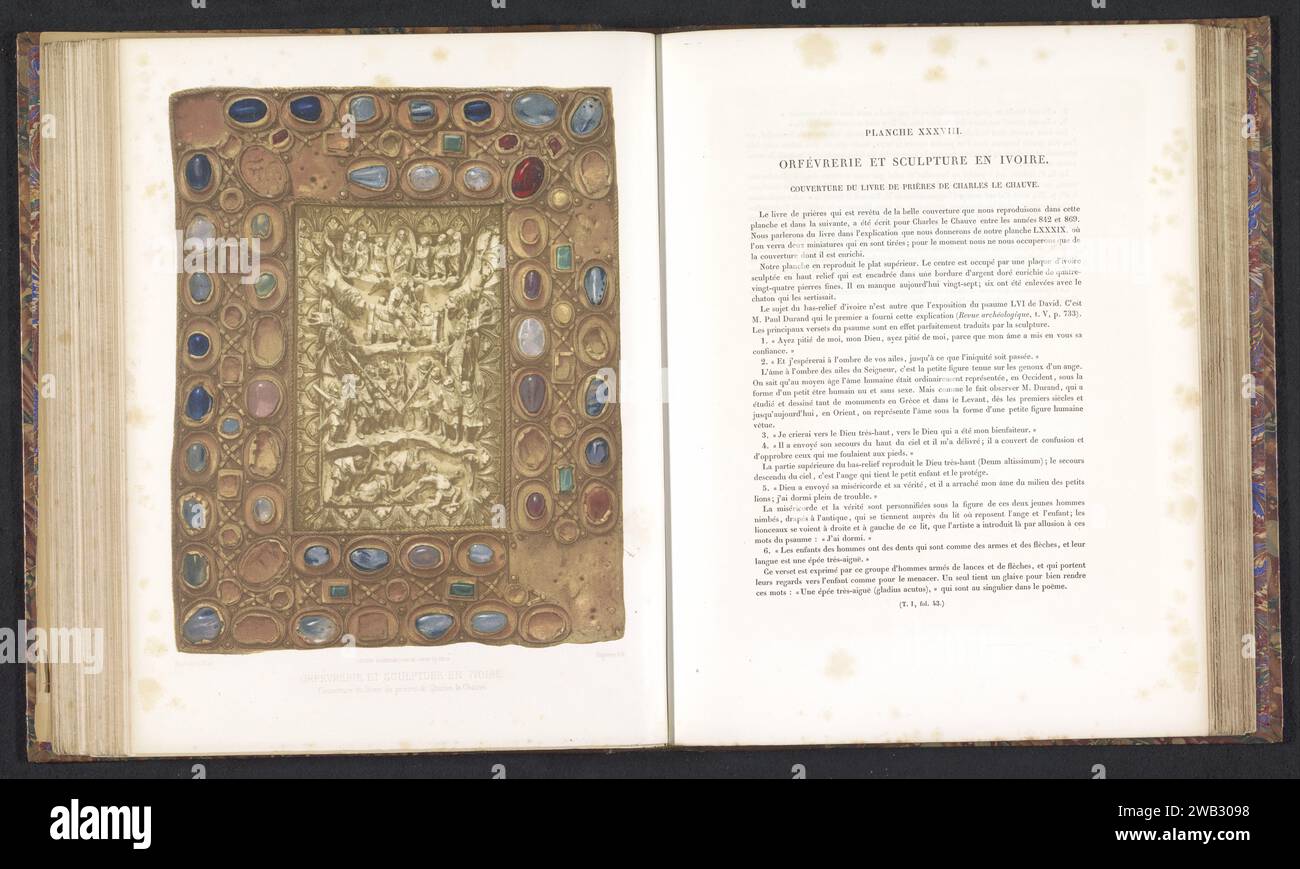 ORFÉVRERIE ET SCULPTURE EN IVOIRE
Couverture du livre de prières de Charles le Chauve
PLANCHE XXXVIII.
ORFÉVRERIE ET SCULPTURE EN IVOIRE.
COUVERTURE DU LIVRE DE PRIÈRES DE CHARLES LE CHAUVE.
Le livre de prières qui est revêtu de la belle couverture que nous reproduisons dans cette
planche et dans la suivante, a été écrit pour Charles le Chauve entre les années 842 et 869.
Nous parlerons du livre dans l'explication que nous donnerons de notre planche LXXXIX, où
l'on verra deux miniatures qui en sont tirées; pour le moment nous ne nous occuperons que de
la couverture dont il est enrichi.
Notre planche en reproduit le plat supérieur. Le centre est occupé par une plaque d'ivoire
sculptée en haut relief qui est encadrée dans une bordure d'argent doré enrichie de quatre-
vingt-quatre pierres fines. Il en manque aujourd'hui vingt-sept; six ont été enlevées avec le
chaton qui les sertissait.
Le sujet du bas-relief d'ivoire n'est autre que l'exposition du psaume LVI de David. C'est
M. Paul Durand qui le premier a fourni cette explication (Revue archéologique, t. V, p. 733).
Les principaux versets du psaume sont en effet parfaitement traduits par la sculpture.
1. « Ayez pitié de moi, mon Dieu, ayez pitié de moi, parce que mon âme a mis en vous sa
confiance. »
2. « Et j'espérerai à l'ombre de vos ailes, jusqu'à ce que l'iniquité soit passée. »
L'âme à l'ombre des ailes du Seigneur, c'est la petite figure tenue sur les genoux d'un ange.
On sait qu'au moyen âge l'âme humaine était ordinairement représentée, en Occident, sous la
forme d'un petit être humain nu et sans sexe. Mais comme le fait observer M. Durand, qui a
étudié et dessiné tant de monuments en Grèce et dans le Levant, dès les premiers siècles et
jusqu'aujourd'hui, en Orient, on représente l'âme sous la forme d'une petite figure humaine
vêtue.
3. « Je crierai vers le Dieu très-haut, vers le Dieu qui a été mon bienfaiteur. »
4. « Il a envoyé son secours du haut du ciel et il m'a délivré; il a couvert de confusion et
d'opprobre ceux qui me foulaient aux pieds. »
La partie supérieure du bas-relief reproduit le Dieu très-haut (Deum altissimum); le secours
descendu du ciel, c'est l'ange qui tient le petit enfant et le protége.
5. « Dieu a envoyé sa miséricorde et sa vérité, et il a arraché mon âme du milieu des petits
lions; j'ai dormi plein de trouble. »
La miséricorde et la vérité sont personnifiées sous la figure de ces deux jeunes hommes
nimbés, drapés à l'antique, qui se tiennent auprès du lit où reposent l'ange et l'enfant; les
lionceaux se voient à droite et à gauche de ce lit, que l'artiste a introduit là par allusion à ces
mots du psaume : « J'ai dormi. »
6. « Les enfants des hommes ont des dents qui sont comme des armes et des flèches, et leur
langue est une épée très-aiguë. »
Ce verset est exprimé par ce groupe d'hommes armés de lances et de flèches, et qui portent
leurs regards vers l'enfant comme pour le menacer. Un seul tient un glaive pour bien rendre
ces mots : « Une épée très-aiguë (gladius acutus), » qui sont au singulier dans le poëme.
(T. I, fol. 43.)
alamy
alamy
Image ID: 2WB3098
www.alamy.com